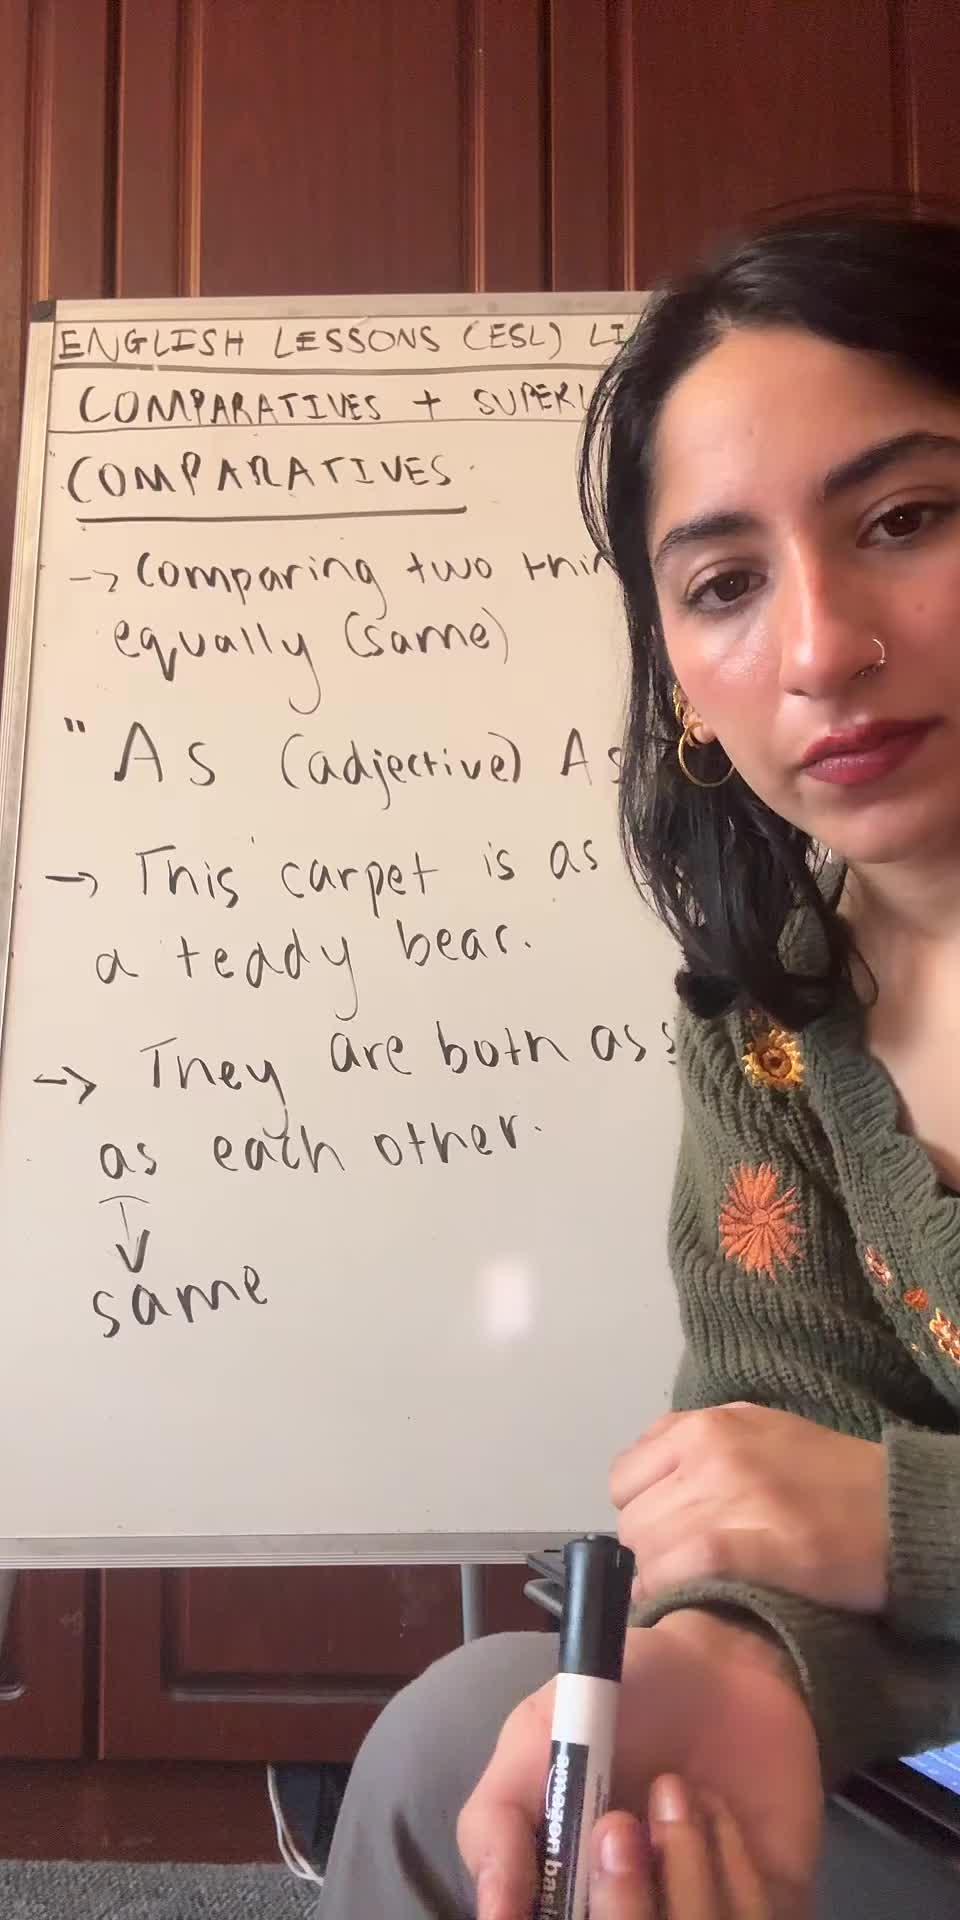 ENGLISH LESSONS (ESL) LI
COMPARATIVES + SUPERL
COMPARATIVES
-> Comparing two thin
equally (same)
"As (adjective) As
-> This carpet is as
a teddy bear.
-> They are both as s
as each other.
same
amazon basi